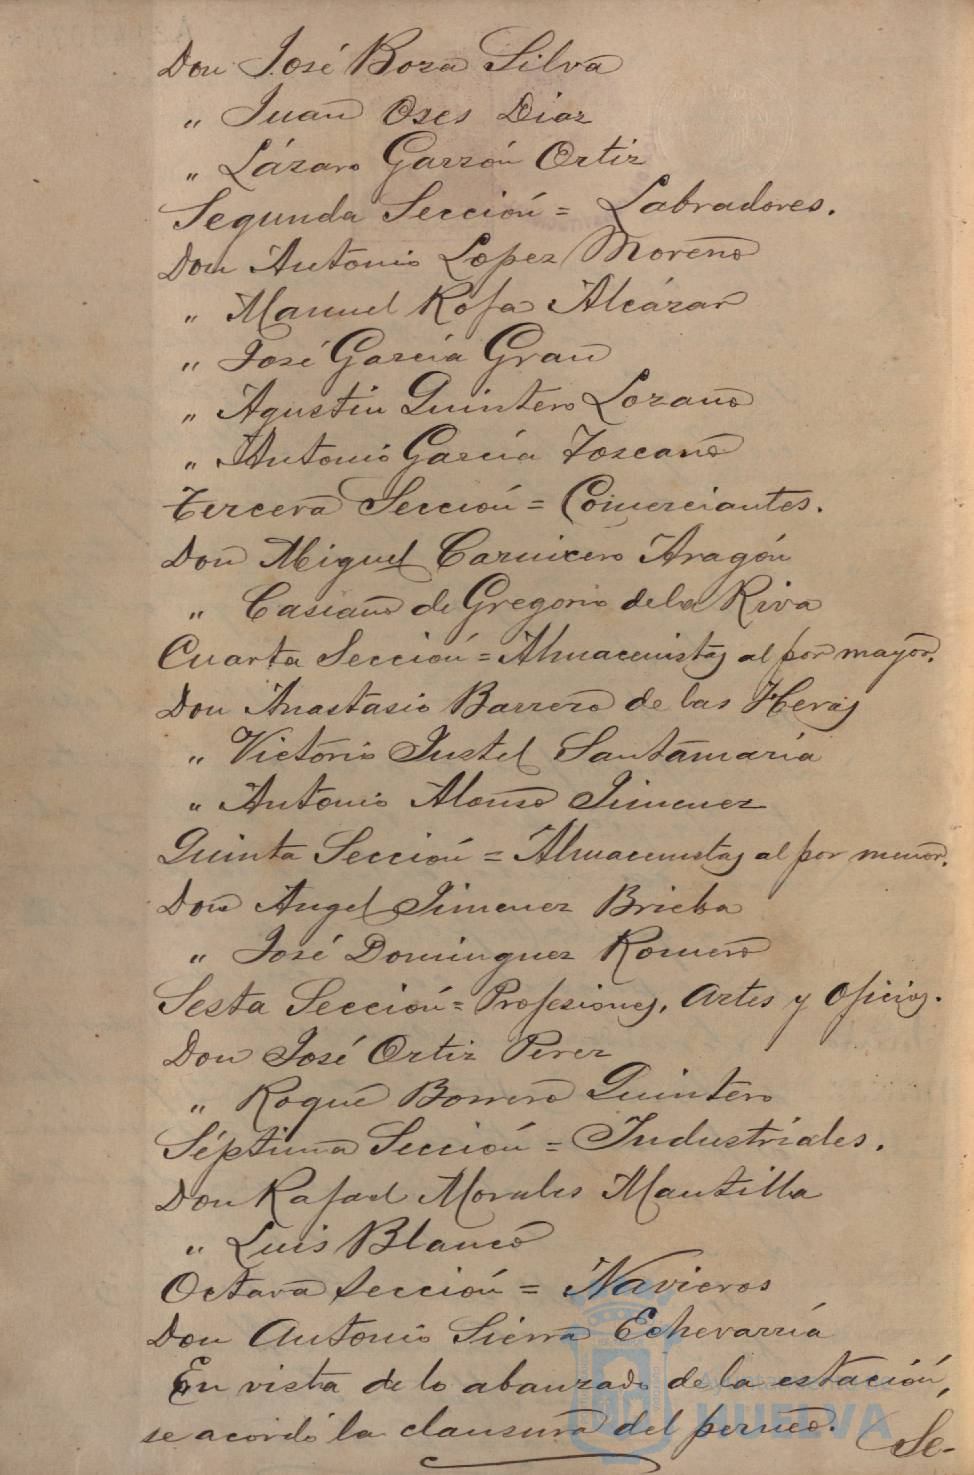 Don José Boza Silva
" Juan Oses Diaz
" Lázaro Garzón Ortiz
Segunda Sección = Labradores.
Don Antonio Lopez Moreno
" Manuel Rofa Alcázar
" José García Gran
" Agustin Quintero Lozano
" Antonio García Toscano
Tercera Sección = Comerciantes.
Don Miguel Carnicero Aragón
" Casiano de Gregorio de la Riva
Cuarta Sección = Almacenistas al por mayor.
Don Anastasio Barrero de las Heras
" Victorio Justel Santamaría
" Antonio Alonso Jimenez
Quinta Sección = Almacenistas al por menor.
Don Angel Jimenez Brieba
" José Dominguez Romero
Sesta Sección = Profesiones, Artes y Oficios.
Don José Ortiz Perez
" Roque Borrero Quintero
Séptima Sección = Industriales.
Don Rafael Morales Mantilla
" Luis Blanco
Octava Sección = Navieros
Don Antonio Sierra Echevarría
En vista de lo abanzado de la estación,
se acordó la clausura del perneo. Se-
HUELVA